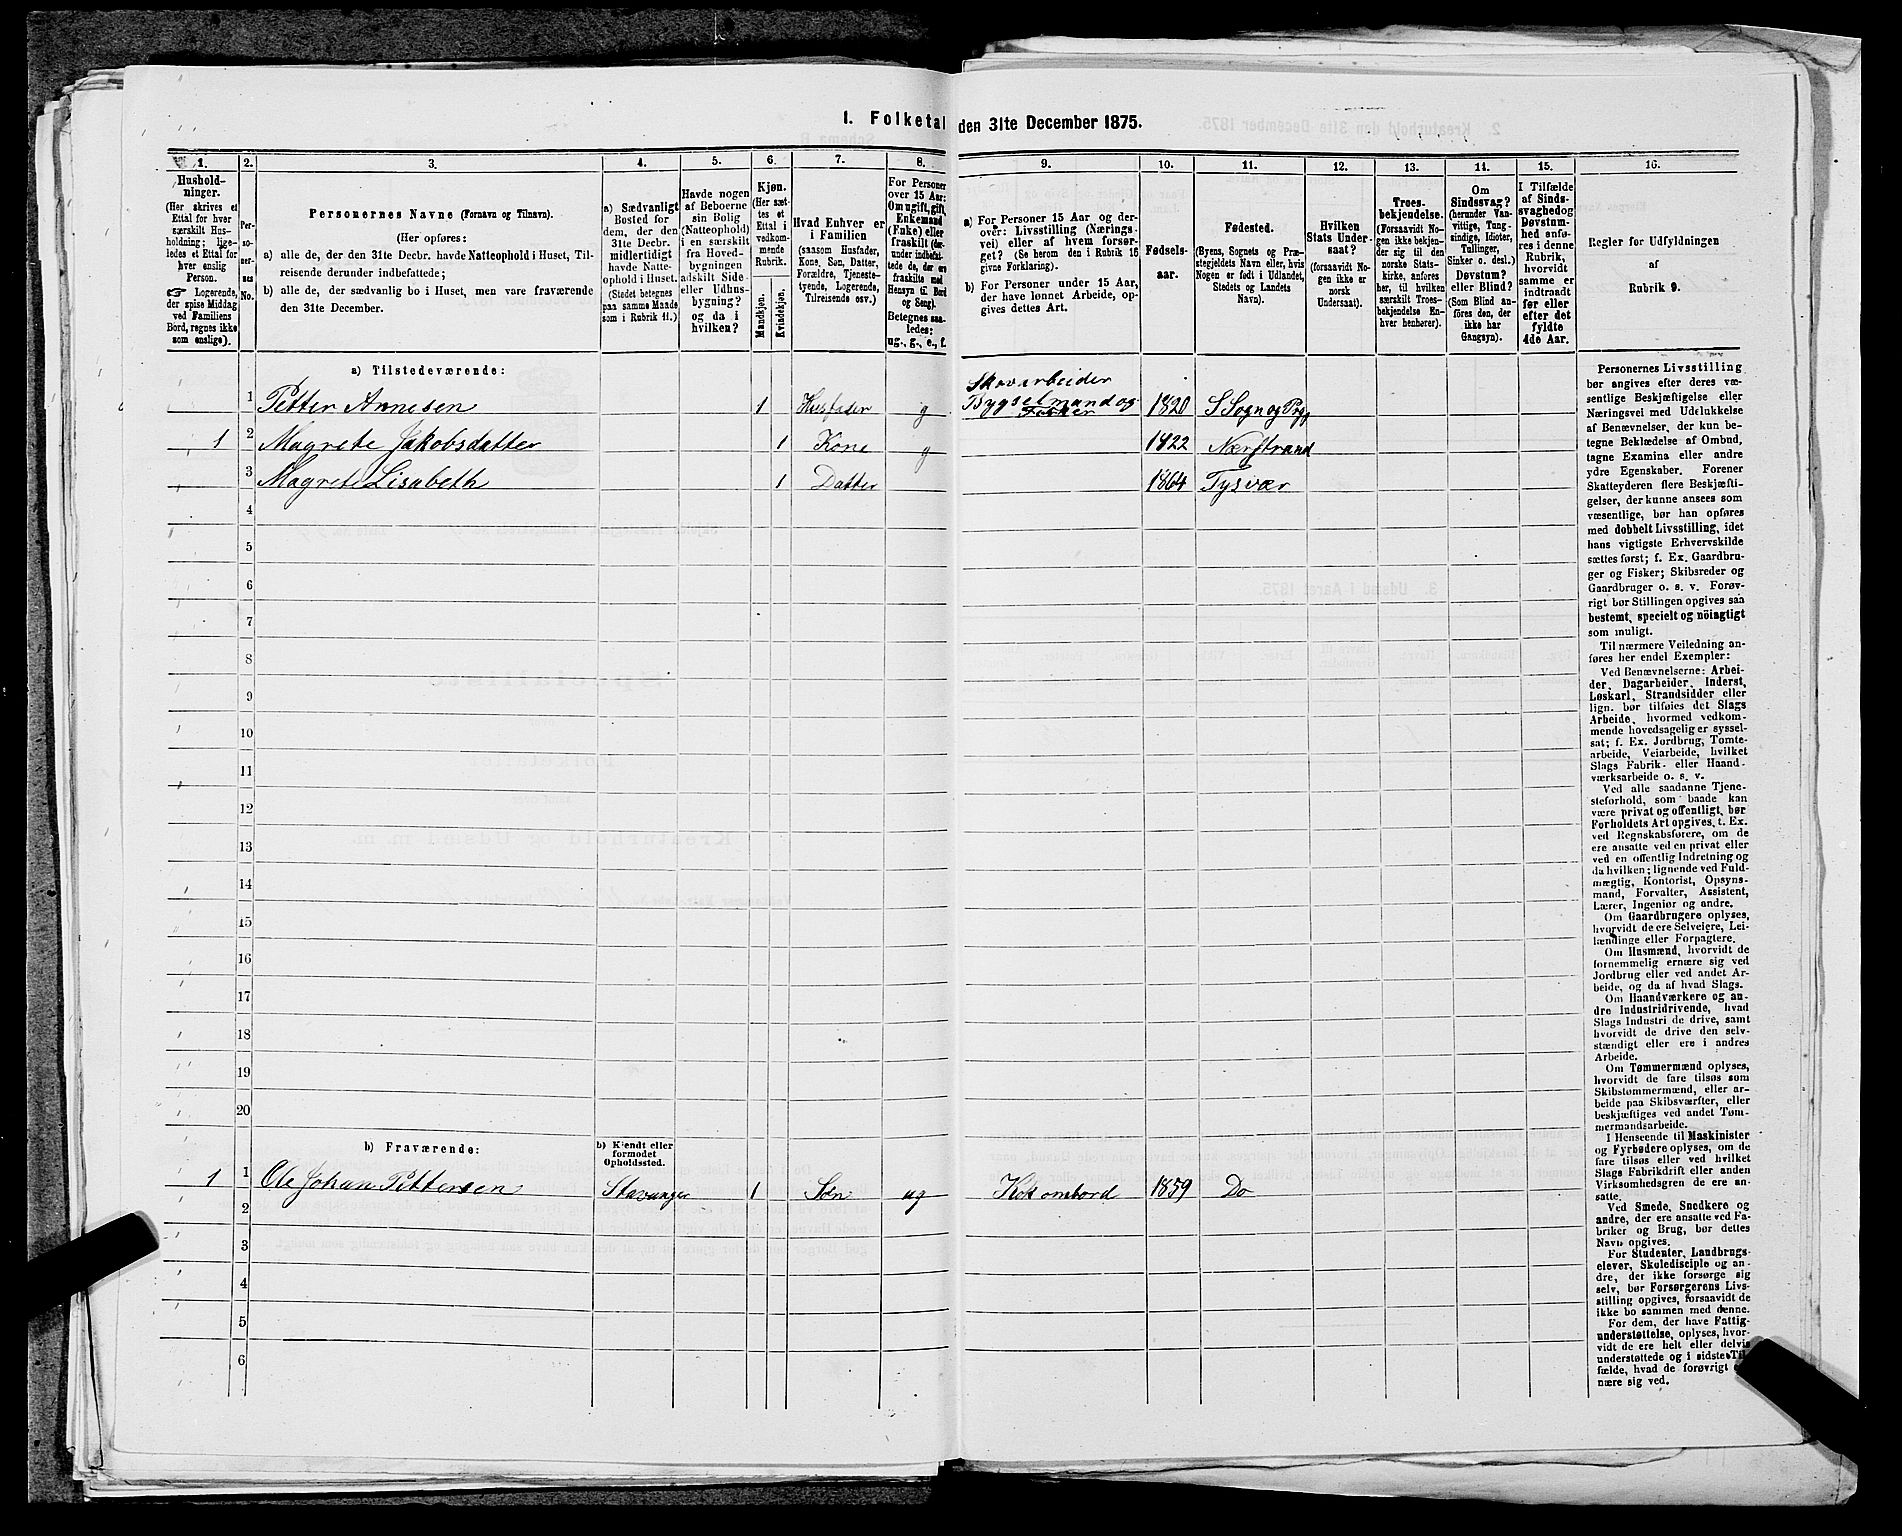 1. Folketal den 31te December 1875.
1. 2. 3. 4. 5. 6. 7. 8. 9. 10. 11. 12. 13. 14. 15. 16.
Hushold-
ninger.
(Her skrives et
Ettal for hver
særskilt Hus-
holdning; lige-
ledes et Ettal for
hver enslig
Person.
☞ Logerende,
der spise Middag
ved Familiens
Bord, regnes ikke
som enslige).
Per-
so-
ner-
nes
No.
Personernes Navne (Fornavn og Tilnavn).
(Her opføres:
a) alle de, der den 31te Decbr. havde Natteophold i Huset, Til-
reisende derunder indbefattede;
b) alle de, der sædvanlig bo i Huset, men vare fraværende
den 31te December.
a) Sædvanligt
Bosted for
dem, der den
31te Decbr.
midlertidigt
havde Natte-
ophold i Huset.
(Stedet betegnes
paa samme Maade
som i Rubrik 11.)
Havde nogen
af Beboerne
sin Bolig
(Natteophold)
i en særskilt
fra Hoved-
bygningen
adskilt Side-
eller Udhus-
bygning?
og da i
hvilken?
Kjøn.
(Her sæt-
tes et
Ettal i
vedkom-
mende
Rubrik.
Mandkjøn.
Kvindekjøn.
Hvad Enhver er
i Familien
(saasom Husfader,
Kone, Søn, Datter,
Forældre, Tjeneste-
tyende, Logerende,
Tilreisende osv.)
For Personer
over 15 Aar:
Om ugift, gift,
Enkemand
(Enke) eller
fraskilt (der-
under indbefat-
tede de, der ere
fraskilte med
Hensyn til Bord
og Seng).
Betegnes saa-
ledes:
ug., g., e., f.
a) For Personer 15 Aar og der-
over: Livsstilling (Nærings-
vei) eller af hvem forsør-
get? (Se herom den i Rubrik 16
givne Forklaring).
b) For Personer under 15 Aar,
der have lønnet Arbeide, op-
gives dettes Art.
Fødsels-
aar.
Fødested.
(Byens, Sognets og Præ-
stegjeldets Navn eller, hvis
Nogen er født i Udlandet,
Stedets og Landets
Navn).
Hvilken
Stats Under-
saat?
(forsaavidt No-
gen ikke er
norsk
Undersaat).
Troes-
bekjendelse.
(Forsaavidt No-
gen ikke bekjen-
der sig til den
norske Stats-
kirke, anføres
her, til hvilken
særskilt Troes-
bekjendelse En-
hver henhører).
Om
Sindssvag?
(herunder Van-
vittige, Tung-
sindige, Idioter,
Tullinger,
Sinker o. desl.)
Døvstum?
eller Blind?
(Som Blind an-
føres den, der
ikke har
Gangsyn).
I Tilfælde
af Sinds-
svaghed og
Døvstum-
hed anfø-
res i denne
Rubrik,
hvorvidt
samme er
indtraadt
før eller
efter det
fyldte
4de Aar.
Regler for Udfyldningen
af
Rubrik 9.
a) Tilstedeværende:
1 Petter Annesen 1 Husfader g Skovarbeider Bygselmand og Fisker 1820 S Sogn og Prg
1 2 Magrete Jakobsdatter 1 Kone g 1822 Nærstrand
3 Magrete Lisabeth 1 Datter 1864 Tysvær
4
5
6
7
8
9
10
11
12
13
14
15
16
17
18
19
20
b) Fraværende:
b) Kjendt eller
formodet
Opholdssted.
1 1 Ole Johan Pettersen Stavanger 1 Søn ug Kok ombord 1859 Do
2
3
4
5
6
Personernes Livsstilling
bør angives efter deres væ-
sentlige Beskjæftigelse eller
Næringsvei med Udelukkelse
af Benævnelser, der kun be-
tegne Beklædelse af Ombud,
tagne Examina eller andre
ydre Egenskaber. Forener
Skatteyderen flere Beskjæfti-
gelser, der kunne ansees som
væsentlige, bør han opføres
med dobbelt Livsstilling, idet
hans vigtigste Erhvervskilde
sættes først; f. Ex. Gaardbru-
ger og Fisker; Skibsreder og
Gaardbruger o. s. v. Forøv-
rigt bør Stillingen opgives saa
bestemt, specielt og nöiagtigt
som muligt.
Til nærmere Veiledning an-
føres her endel Exempler:
Ved Benævnelserne: Arbei-
der, Dagarbeider, Inderst,
Løskarl, Strandsidder eller
lign. bør tilføies det Slags
Arbeide, hvormed vedkom-
mende hovedsagelig er syssel-
sat; f. Ex. Jordbrug, Tomte-
arbeide, Veiarbeide, hvilket
Slags Fabrik- eller Haand-
værksarbeide o. s. v.
Ved alle saadanne Tjene-
steforhold, som baade kan
være privat og offentligt, bør
Forholdets Art opgives, t. Ex.
ved Regnskabsførere, om de
ere ansatte ved en privat eller
ved en offentlig Indretning og
da hvilken; lignende ved Fuld-
mægtig, Kontorist, Opsyns-
mand, Forvalter, Assistent,
Lærer, Ingeniør og andre.
Om Gaardbrugere oplyses,
hvorvidt de ere Selveiere, Lei-
lændinge eller Forpagtere.
Om Husmænd, hvorvidt de
fornemmelig ernære sig ved
Jordbrug eller ved andet Ar-
beide, og da af hvad Slags.
Om Haandværkere og an-
dre Industridrivende, hvad
Slags Industri de drive, samt
hvorvidt de drive den selv-
stændigt eller ere i andres
Arbeide.
Om Tømmermænd oplyses,
hvorvidt de fare tilsøs som
Skibstømmermænd, eller ar-
beide paa Skibsværfter, eller
beskjæftiges ved andet Tøm-
mermandsarbeide.
I Henseende til Maskinister
og Fyrbødere oplyses, om de
fare tilsøs eller ved hvilket
Slags Fabrikdrift eller anden
Virksomhedsgren de ere an-
satte.
Ved Smede, Snedkere og
andre, der ere ansatte ved Fa-
briker og Brug, bør dettes
Navn opgives.
For Studenter, Landbrugs-
elever, Skoledisciple og an-
dre, der ikke forsørge sig
selv, bør Forsørgerens Livs-
stilling opgives, forsaavidt de
ikke bo sammen med denne.
For dem, der have Fattig-
understøttelse, oplyses, hvor-
vidt de ere helt eller delvis
understøttede og i sidste Til-
fælde, hvad de forøvrigt
nære sig ved.